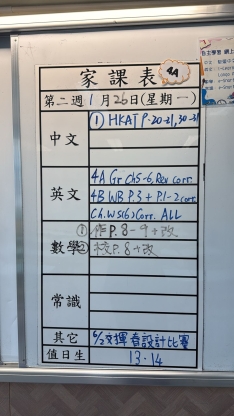 家課表
4A
第二週 1月26日(星期一)
中文
① HKAT P.20-21, 30-31
英文
4A Gr Ch5-6, Rev corr.
4B WB P.3 + P.1-2 corr.
Ch.WS(6) Corr. ALL
數學
① 作P.8-9+改
② 校P.8+改
常識
其它
設計比賽
值日生
13.14